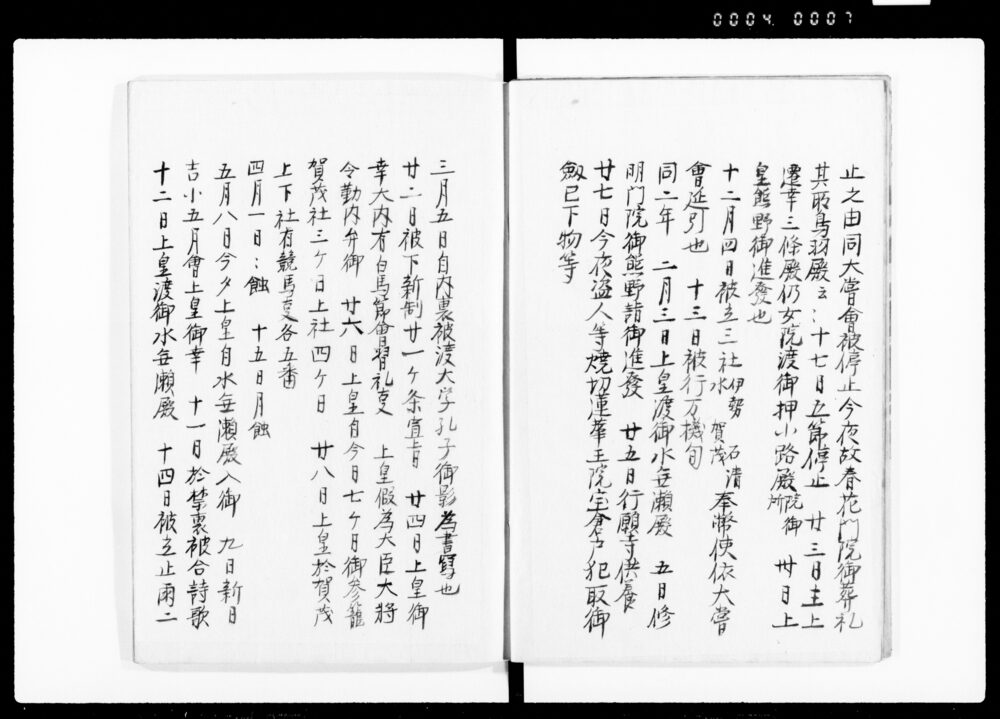 0004 0007
止之由同大嘗會被停止今夜故春花門院御葬礼
其所鳥羽殿云〻十七日五節停止 廿三日主上
遷幸三條殿仍女院渡御押小路殿院御所 卅日上
皇熊野御進發也
十二月四日被立三社伊勢 石清水 賀茂奉幣使依大嘗
會延引也 十三日被行万機旬
同二年 二月三日上皇渡御水無瀬殿 五日修
明門院御熊野詣御進發 廿五日行願寺供養
廿七日今夜盗人等焼切蓮華王院宝倉戸犯取御
劔已下物等
三月五日自内裏被渡大学孔子御影為書寫也
廿二日被下新制廿一ケ条宣旨 廿四日上皇御
幸大内有白馬節會習礼事 上皇假為大臣大将
令勤内弁御 廿六日上皇自今日七ケ日御参籠
賀茂社三ケ日上社四ケ日 廿八日上皇於賀茂
上下社有競馬事各五番
四月一日〻蝕 十五日月蝕
五月八日今夕上皇自水無瀬殿入御 九日新日
吉小五月會上皇御幸 十一日於禁裏被合詩歌
十二日上皇渡御水無瀬殿 十四日被立止雨二